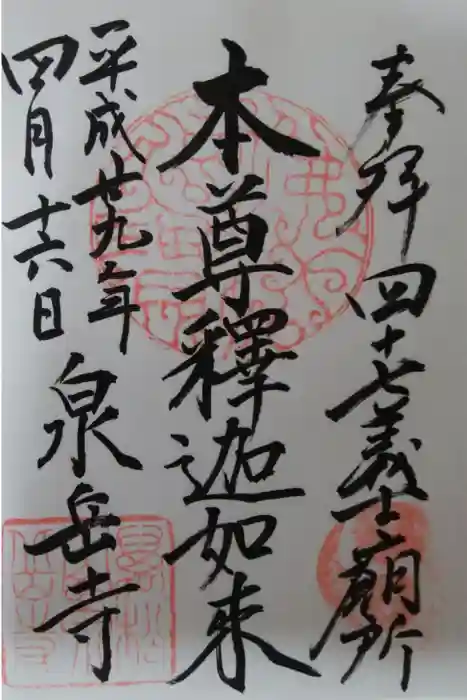 奉拝 四十七義士廟所
本尊釋迦如来
平成廿九年
四月十六日
泉岳寺